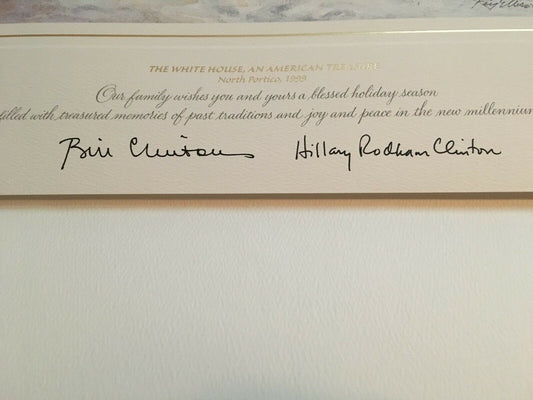 THE WHITE HOUSE, AN AMERICAN TREASURE
North Portico, 1999
Our family wishes you and yours a blessed holiday season
filled with treasured memories of past traditions and joy and peace in the new millennium
Bill Clinton
Hillary Rodham Clinton